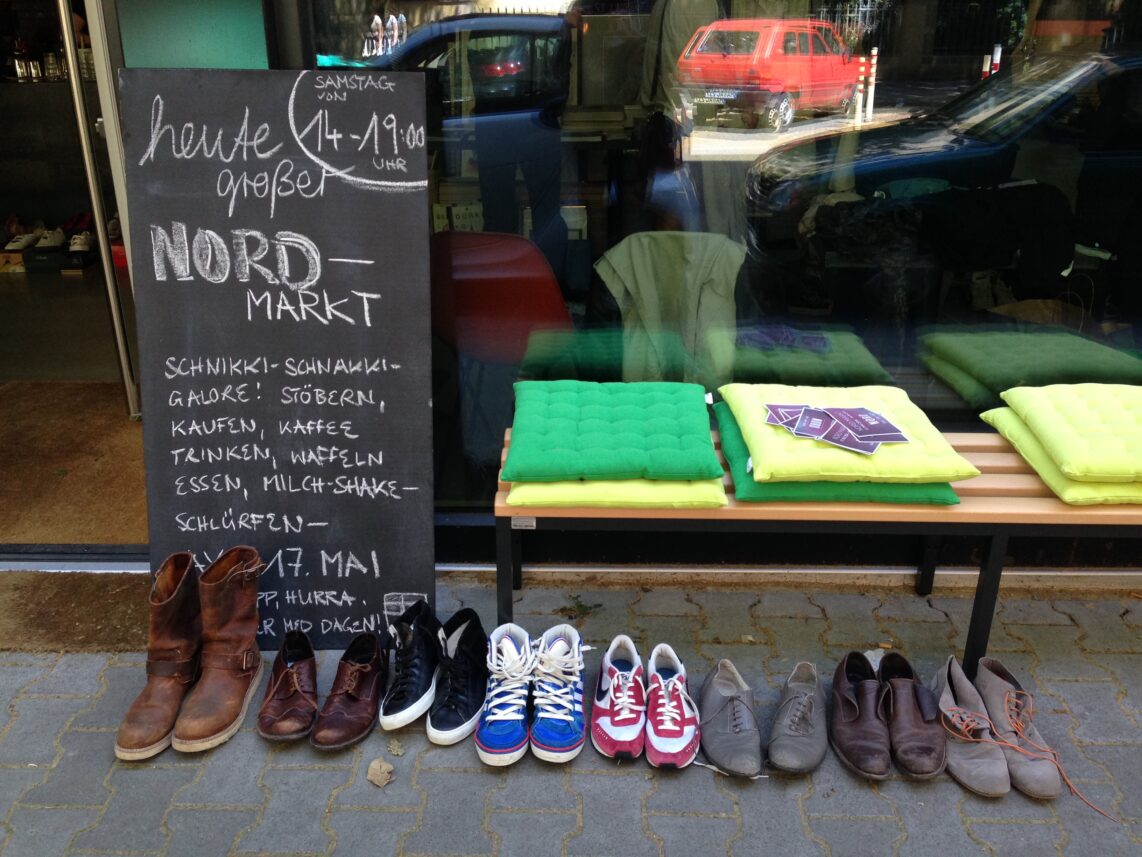 SAMSTAG
VON
14-19:00
UHR
heute
großer
NORD-
MARKT
SCHNIKKI-SCHNAKKI-
GALORE! STÖBERN,
KAUFEN, KAFFEE
TRINKEN, WAFFELN
ESSEN, MILCH-SHAKE-
SCHLÜRFEN-
17. MAI
HURRA.
MED DAGEN!